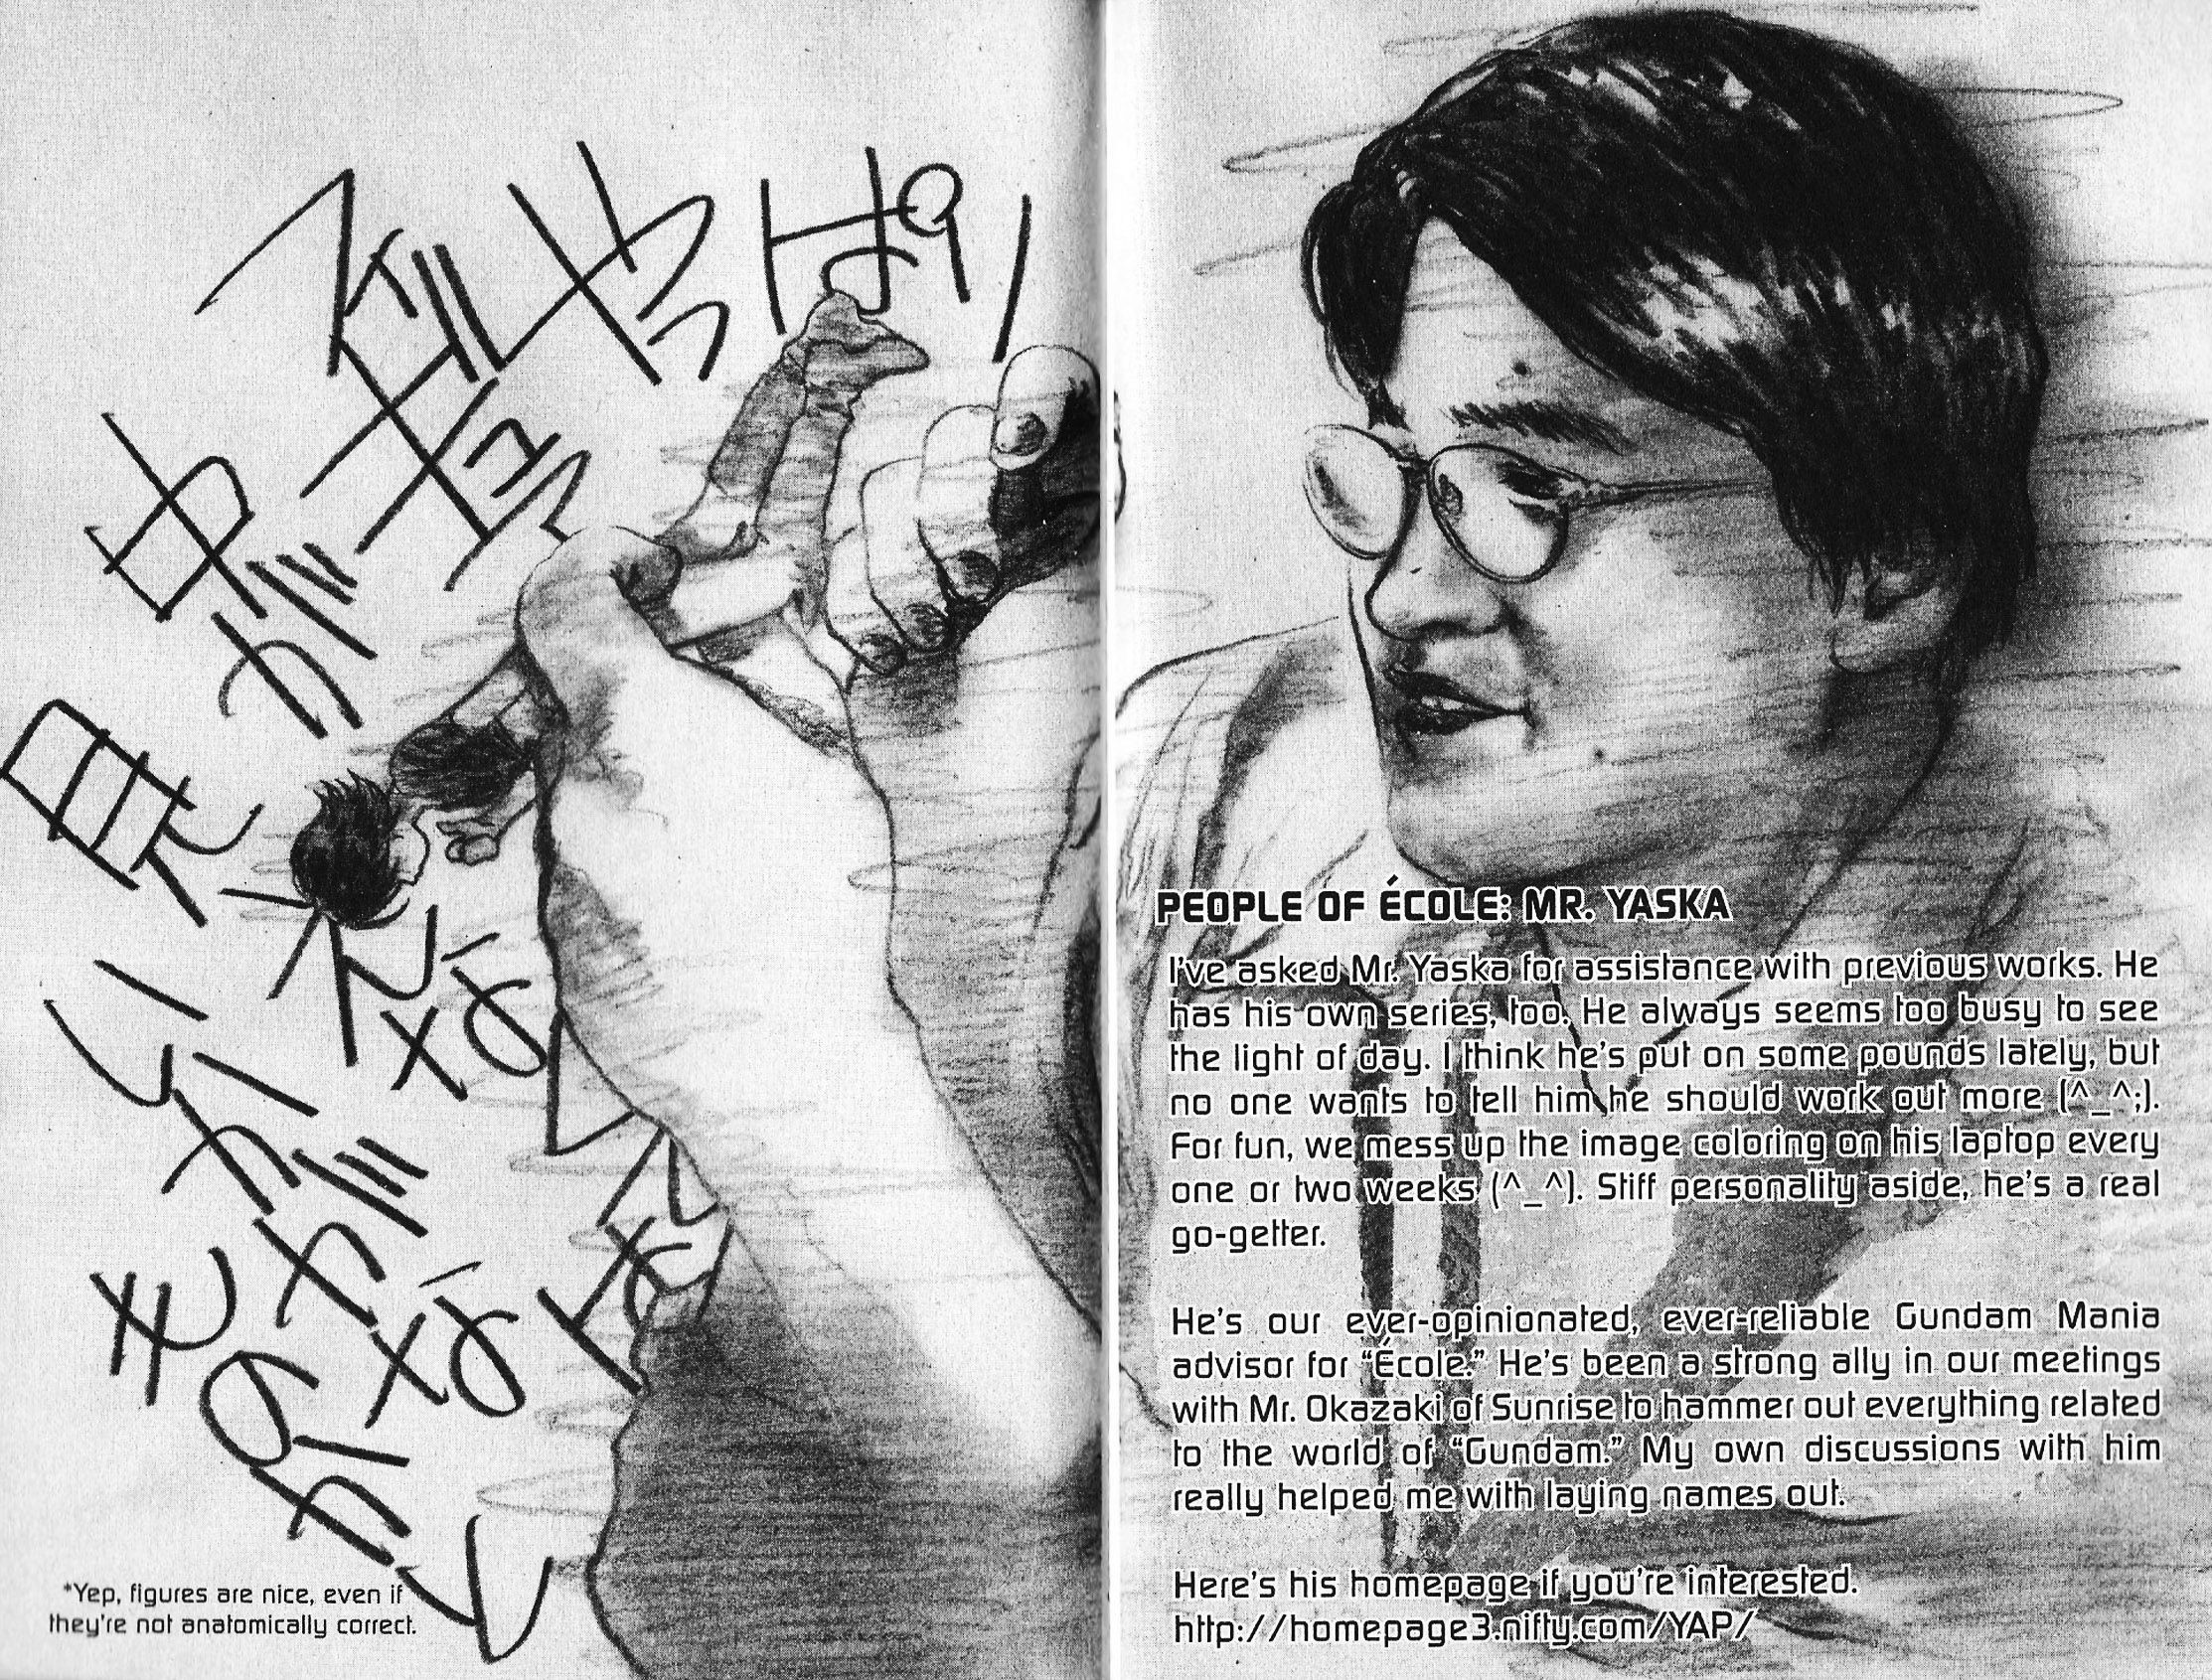 やっぱり
中が見
*Yep, figures are nice, even if
they're not anatomically correct.
PEOPLE OF ÉCOLE: MR. YASKA
I've asked Mr. Yaska for assistance with previous works. He
has his own series, too. He always seems too busy to see
the light of day. I think he's put on some pounds lately, but
no one wants to tell him he should work out more (^_^;).
For fun, we mess up the image coloring on his laptop every
one or two weeks (^_^). Stiff personality aside, he's a real
go-getter.
He's our ever-opinionated, ever-reliable Gundam Mania
advisor for “École.” He's been a strong ally in our meetings
with Mr. Okazaki of Sunrise to hammer out everything related
to the world of “Gundam.” My own discussions with him
really helped me with laying names out.
Here's his homepage if you're interested.
http://homepage3.nifty.com/YAP/